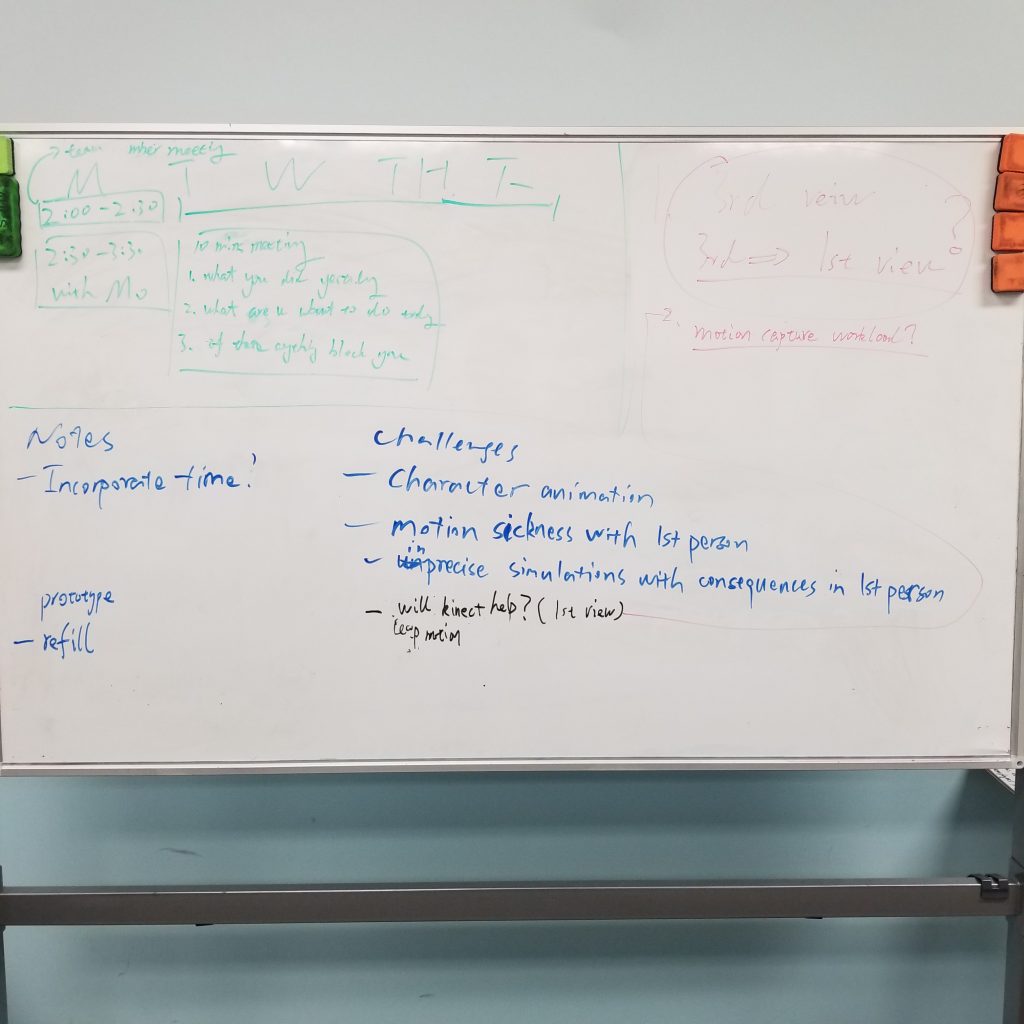 team mber meeting
M T W TH F
2:00-2:30
2:30-3:30
with Mo
10 mins meeting
1. what you did
2. what are u about to do
3. block you
1
3rd veiw
3rd ⇒ 1st view ?
2. motion capture workload?
Notes
- Incorporate time?
prototype
- refill
Challenges
- Character animation
- motion sickness with 1st person
- inprecise simulations with consequences in 1st person
- will kinect help? (1st view)
leap motion